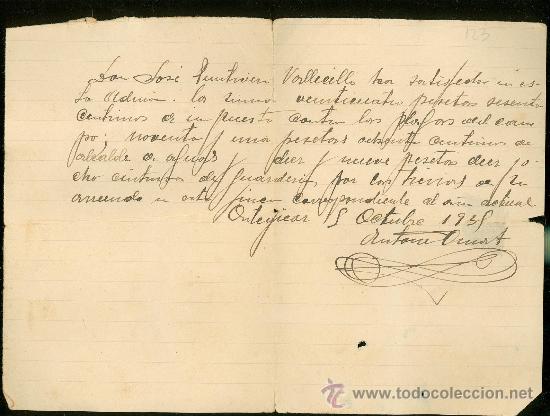 123
Don José Vallecillo ha satisfecho en es-
ta Admon. la suma veinticuatro pesetas sesenta
centimos de impuesto contra las plagas del cam-
po; noventa y una pesetas ochenta centimos de
alcalde de aguas y diez y nueve pesetas diez io
cho centimos de guarderia por las tierras de su
arriendo en esta finca correspondiente al año actual
Ortejicar 5 Octubre 1935
Antonio
todocoleccion
www.todocoleccion.net